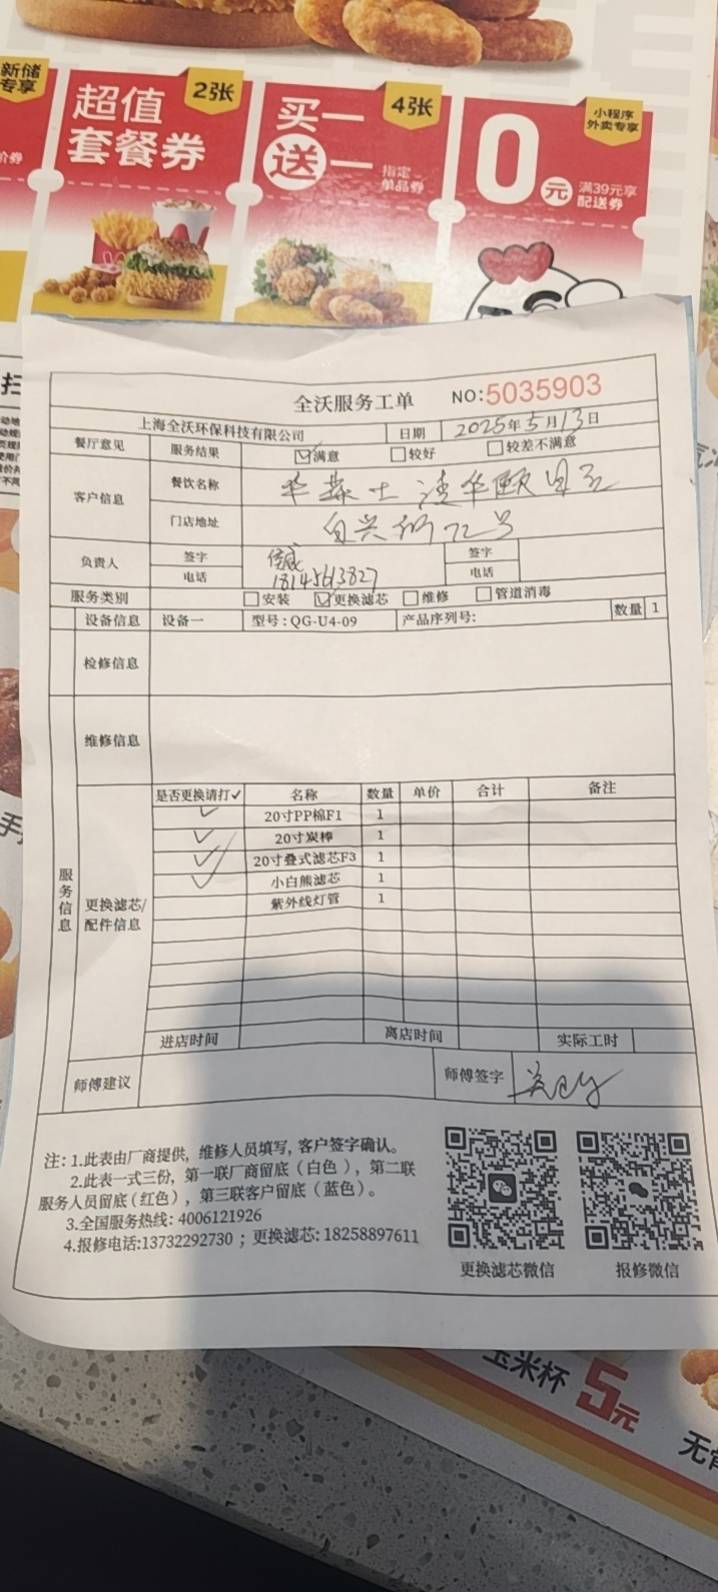 新储
专享
超值
套餐券
2张
买一
送一
4张
指定
单品券
0元
小程序
外卖专享
满39元享
配送券
价券
扫
全沃服务工单 NO:5035903
上海全沃环保科技有限公司 日期 2025年5月13日
餐厅意见 服务结果 ☑满意 □较好 □较差不满意
客户信息 餐饮名称 华莱士清华颐园店
门店地址 自兴街72号
负责人 签字 签字
电话 18145613827 电话
服务类别 □安装 ☑更换滤芯 □维修 □管道消毒
设备信息 设备一 型号:QG-U4-09 产品序列号: 数量 1
检修信息
维修信息
服务信息
更换滤芯/
配件信息
是否更换请打✓ 名称 数量 单价 合计 备注
✓ 20寸PP棉F1 1
✓ 20寸炭棒 1
✓ 20寸叠式滤芯F3 1
✓ 小白熊滤芯 1
紫外线灯管 1
进店时间 离店时间 实际工时
师傅建议 师傅签字
注: 1.此表由厂商提供, 维修人员填写, 客户签字确认。
2.此表一式三份, 第一联厂商留底 (白色), 第二联
服务人员留底 (红色), 第三联客户留底 (蓝色)。
3.全国服务热线: 4006121926
4.报修电话:13732292730 ; 更换滤芯: 18258897611
更换滤芯微信 报修微信
玉米杯 5元
无骨